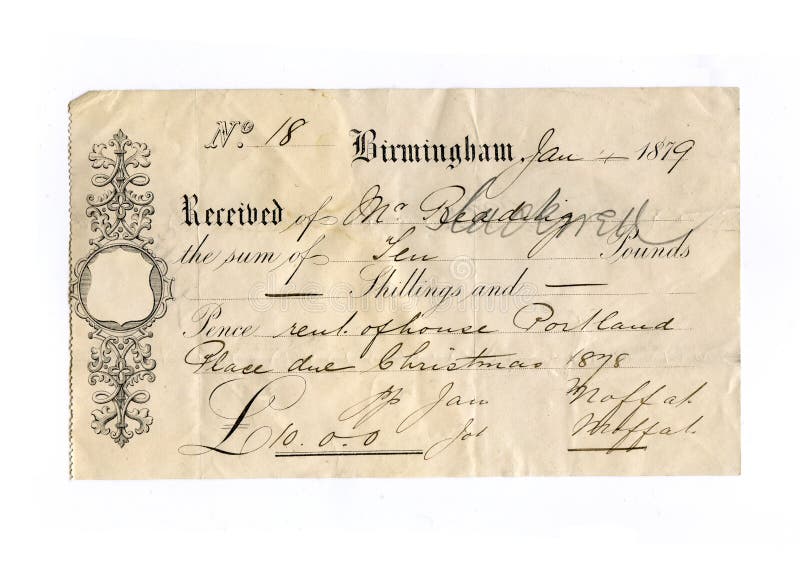 No. 18
Birmingham, Jan 4 1879
Received of Mr
the sum of Ten Pounds
— Shillings and —
Pence rent of house Portland
Place due Christmas 1878
pp Jas Moffat
£10.0.0 Jos Moffat